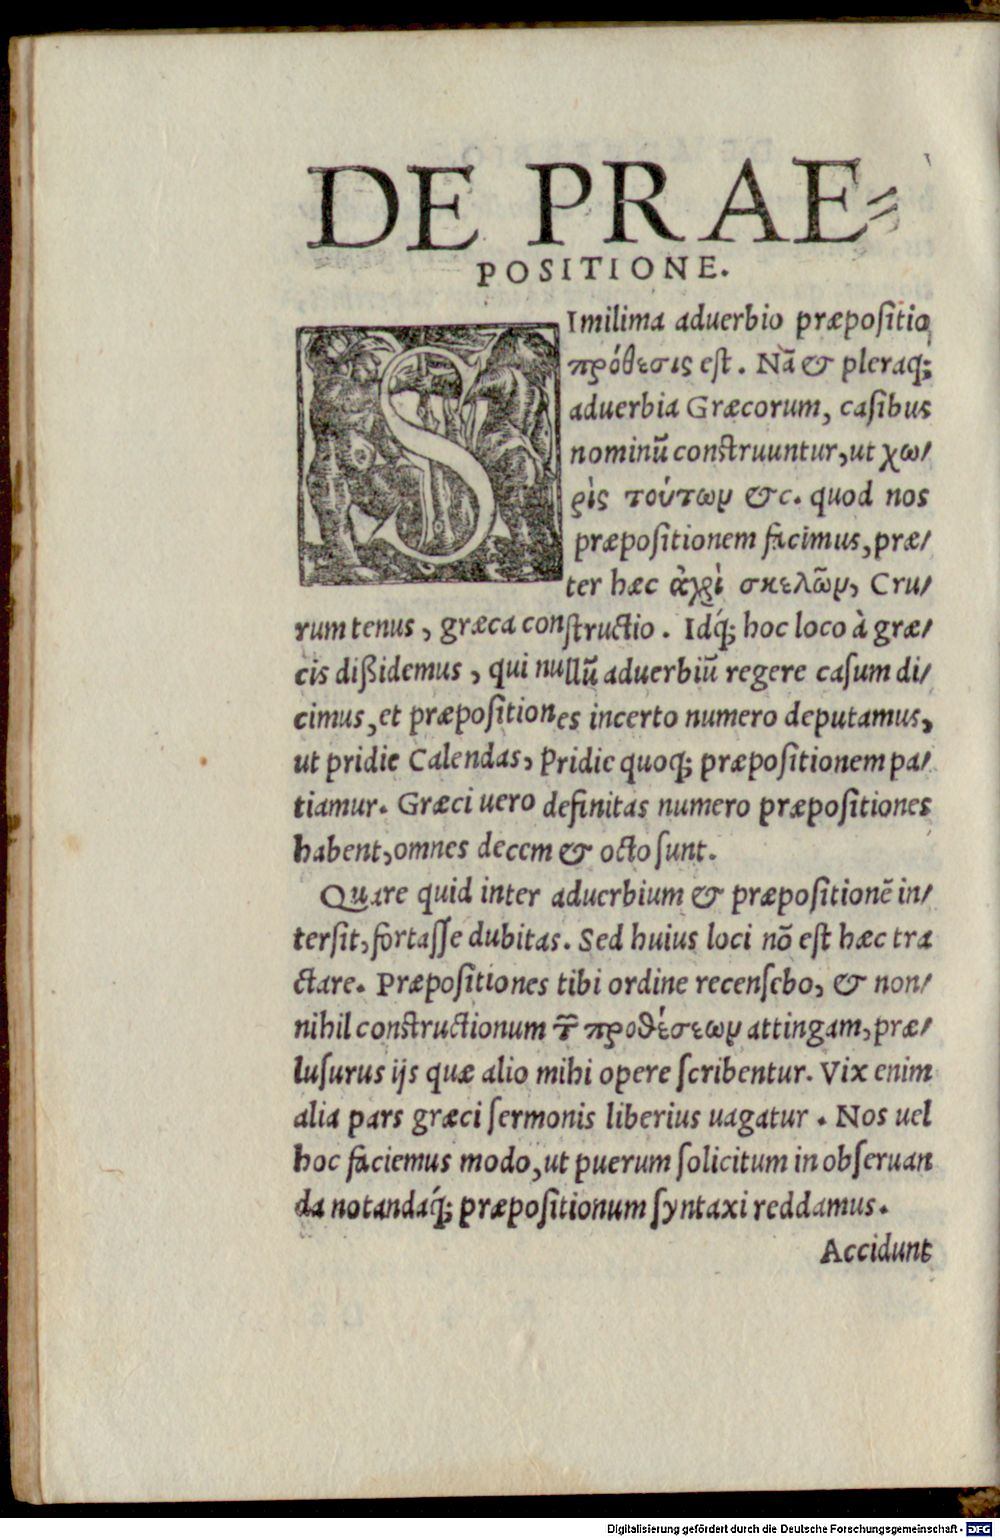 DE PRAE⸗
POSITIONE.
SImilima aduerbio præpoſitio
πρόθεσις eſt. Nã & pleraq;
aduerbia Græcorum, caſibus
nominũ construuntur, ut χω/
ρὶς τούτωμ &c. quod nos
præpoſitionem facimus, præ/
ter hæc ἀχρὶ σκελῶμ, Cru/
rum tenus, græca conſtructio. Idq́; hoc loco à græ/
cis dißidemus, qui nullũ aduerbiũ regere caſum di/
cimus, et præpoſitiones incerto numero deputamus,
ut pridie Calendas, Pridie quoq; præpoſitionem pa/
tiamur. Græci uero definitas numero præpoſitiones
habent, omnes decem & octo ſunt.
Quare quid inter aduerbium & præpoſitionẽ in/
terſit, fortaſſe dubitas. Sed huius loci nõ eſt hæc tra
ctare. Præpoſitiones tibi ordine recenſebo, & non/
nihil constructionum τ̃ προθέσεωμ attingam, præ/
luſurus ijs quæ alio mihi opere ſcribentur. Vix enim
alia pars græci ſermonis liberius uagatur. Nos uel
hoc faciemus modo, ut puerum ſolicitum in obſeruan
da notandaq́; præpoſitionum ſyntaxi reddamus.
Accidunt
Digitalisierung gefördert durch die Deutsche Forschungsgemeinschaft - DFG